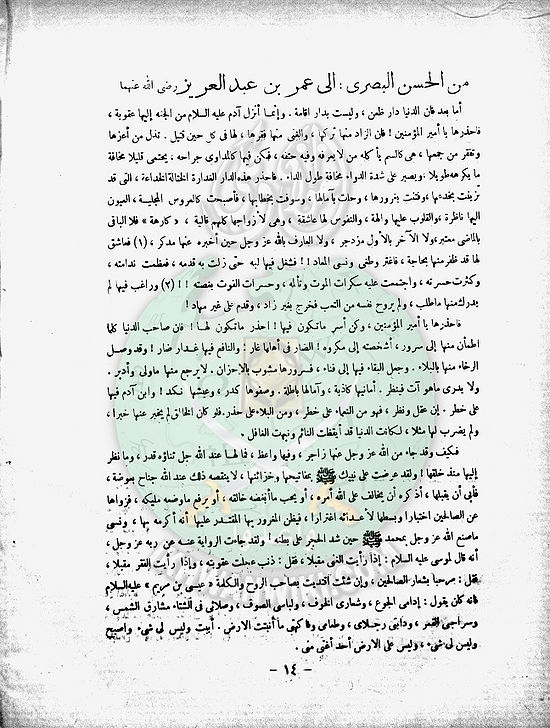 من الحسن البصرى : الى عمر بن عبد العزيز رضى الله عنهما
أما بعد فان الدنيا دار ظعن ، وليست بدار اقامة . وإنما أنزل آدم عليه السلام من الجنة إليها عقوبة ،
فاحذرها يا أمير المؤمنين ! فان الزاد منها تركها ، والغنى منها فقرها ، لها فى كل حين قتيل . تذل من أعزها
وتفقر من جمعها ، هى كالسم يأكله من لا يعرفه وفيه حتفه ، فكن فيها كالمداوى جراحه : يحتمى قليلا مخافة
ما يكرهه طويلا ويصبر على شدة الدواء مخافة طول الداء . فاحذر هذه الدار الغدارة الختالة الخداعة ، التى قد
تزينت بخدعها ، وفتنت بغرورها ، وحلت بآمالها ، وسوفت بخطابها ، فأصبحت كالعروس المجلية ، العيون
اليها ناظرة ، والقلوب عليها والهة ، والنفوس لها عاشقة ، وهى لأزواجها كلهم قالية ، « كارهة » فلا الباقى
بالماضى معتبر ، ولا الآخر بالأول مزدجر ، ولا العارف بالله عز وجل حين أخبره عنها مدكر ، (١) فعاشق
لها قد ظفر منها بحاجة ، فاغتر وطغى ونسى المعاد ! ! فشغل فيها لبه حتى زلت به قدمه ، فعظمت ندامته ،
وكثرت حسرته ، واجتمعت عليه سكرات الموت وتألمه ، وحسرات الفوت بغصته ! ! (٢) وراغب فيها لم
يدرك منها ماطلب ، ولم يروح نفسه من التعب فخرج بغير زاد ، وقدم على غير مهاد !
فاحذرها يا أمير المؤمنين ، وكن أسر ماتكون فيها ! احذر ماتكون لها ! فان صاحب الدنيا كلما
اطمأن منها إلى سرور ، أشخصته إلى مكروه ! الضار فى أهلها غار : والنافع فيها غدار ضار ! وقد وصل
الرخاء منها بالبلاء . وجعل البقاء فيها إلى فناء ، فسرورها مشوب بالاحزان . لا يرجع منها ماولى وأدبر .
ولا يدرى ماهو آت فينتظر . أمانيها كاذبة ، وآمالها باطلة . وصفوها كدر ، وعيشها نكد ! وابن آدم فيها
على خطر . إن عقل ونظر ، فهو من النعماء على خطر ، ومن البلاء على حذر . فلو كان الخالق لم يخبر عنها خبرا ،
ولم يضرب لها مثلا ، لكانت الدنيا قد أيقظت النائم ونبهت الغافل .
فكيف وقد جاء من الله عز وجل عنها زاجر ، وفيها واعظ ، فما لها عند الله جل ثناؤه قدر ، وما نظر
إليها منذ خلقها ! ولقد عرضت على نبيك ﷺ بمفاتيحها وخزائنها ، لا ينقصه ذلك عند الله جناح بعوضة ،
فأبى أن يقبلها ، أذكره أن يخالف على الله أمره ، أو يحب ما أبغضه خالقه ، أو يرفع ماوضعه مليكه ، فزواها
عن الصالحين اختبارا وبسطها لأعدائه اغترارا ، فيظن المغرور بها المقتدر عليها أنه أكرمه بها ، ونسى
ماصنع الله عز وجل بمحمد ﷺ حين شد الحجر على بطنه ! ولقد جاءت الرواية عنه عن ربه عز وجل ،
أنه قال لموسى عليه السلام : إذا رأيت الغنى مقبلا ، فقل : ذنب عجلت عقوبته ، وإذا رأيت الفقر مقبلا ،
فقل : مرحبا بشعار الصالحين ، وإن شئت اقتديت بصاحب الروح والكلمة « عيسى بن مريم » عليه السلام
فانه كان يقول : إدامى الجوع ، وشعارى الخوف ، ولباسى الصوف ، وصلائى فى الشتاء مشارق الشمس ،
وسراجى القمر ، ودابتى رجلاى ، وطعامى وفاكهتى ما أنبتت الأرض . أبيت وليس لى شىء وأصبح
وليس لى شىء ، وليس على الارض أحد أغنى منى .
– ١٤ –